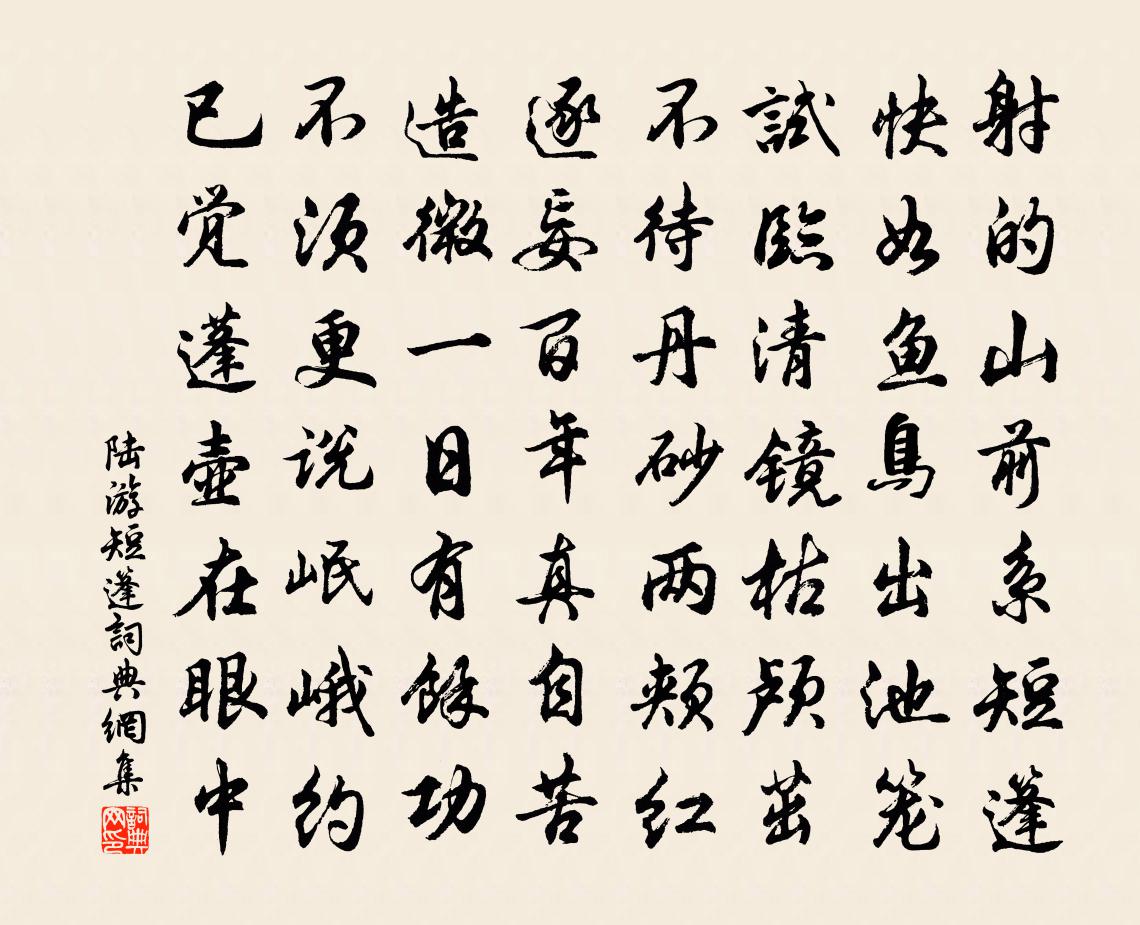 射的山前系短蓬
快如鱼鳥出池笼
試臨清镜枯颅茁
不待丹砂两颊红
逐妄百年真自苦
造微一日有餘功
不须更说岷峨约
已觉蓬壺在眼中
陆游短蓬詞典網集
詞典网印